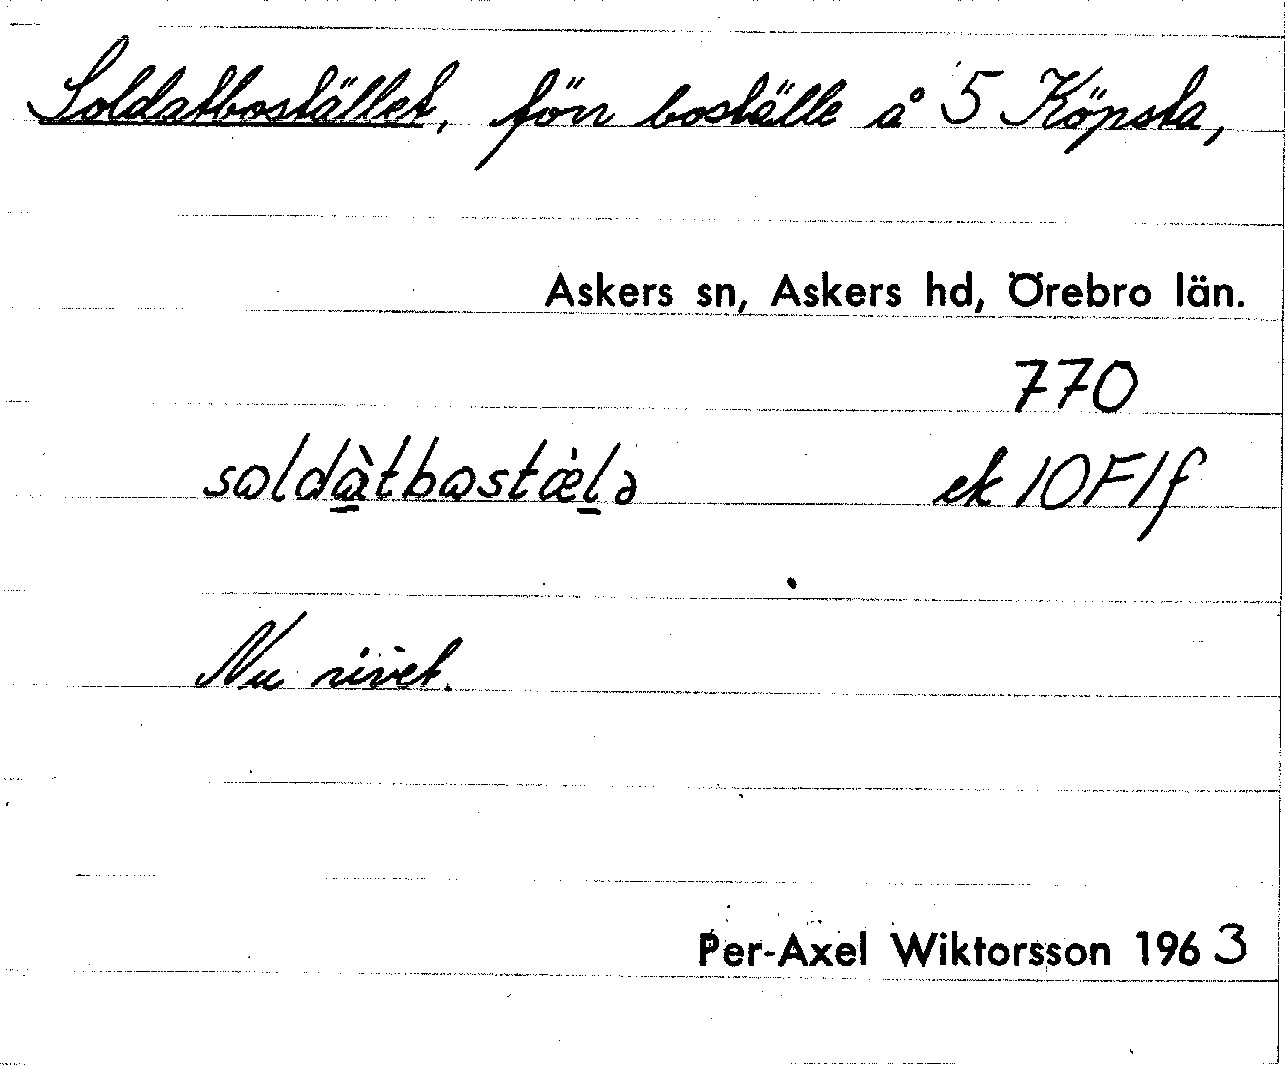 Soldatbostället, förr boställe å 5 Köpsta,
Askers sn, Askers hd, Örebro län.
770
soldàtbostæ̀lə ek 10F1f
Nu rivet.
Per-Axel Wiktorsson 1963